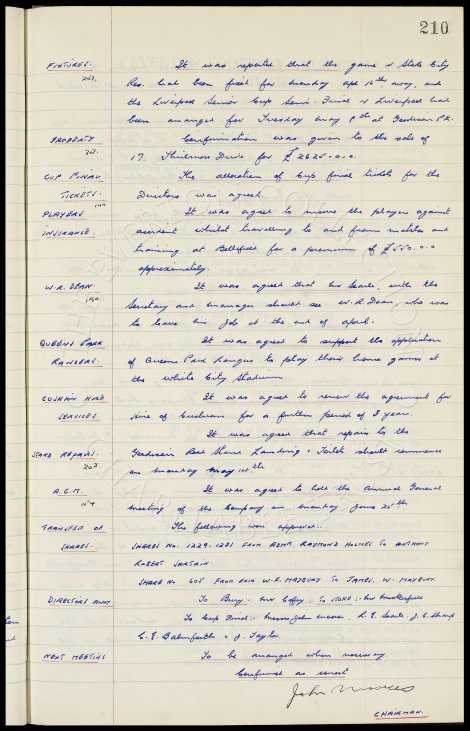 210
FIXTURES. It was reported that the game v Stoke City
207. Res. had been fixed for Monday Apl 16th, away, and
the Liverpool Senior Cup Semi-Final v Liverpool had
been arranged for Tuesday May 8th at Goodison Pk.
PROPERTY Confirmation was given to the sale of
207. 17. Thirlmere Drive for £2625.0.0.
CUP FINAL The allocation of Cup final tickets for the
TICKETS. Directors was agreed.
PLAYERS It was agreed to insure the players against
INSURANCE. accident whilst travelling to and from matches and
training at Bellefield for a premium of £550.0.0
approximately.
W.R. DEAN It was agreed that Mr Searle, with the
190. Secretary and manager should see W.R. Dean, who was
to leave his job at the end of April.
QUEENS PARK It was agreed to support the application
RANGERS. of Queens Park Rangers to play their home games at
the White City Stadium.
CUSHION HIRE It was agreed to renew the agreement for
SERVICES hire of cushions for a further period of 3 years.
It was agreed that repairs to the
STAND REPAIRS. Goodison Road Stand Landing & Toilets should commence
203. on Monday May 1st
A.G.M. It was agreed to hold the Annual General
154 meeting of the Company on Monday, June 25th
TRANSFER OF The following were approved:-
SHARES. SHARES No. 1229-1231 FROM RAYMOND HUGHES TO ANTHONY
ROBERT SARTAIN.
SHARE No 605 FROM W.F. MAYBURY TO JAMES. W. MAYBURY.
DIRECTORS AWAY To Bury:- Mr Coffey; To STOKE:- Mr
To Cup Final:- Messrs John Moores. R.E. Searle. J.C. Sharp
C.E. Balmforth & J. Taylor.
NEXT MEETING To be arranged when necessary.
Confirmed as correct
John Moores
CHAIRMAN.